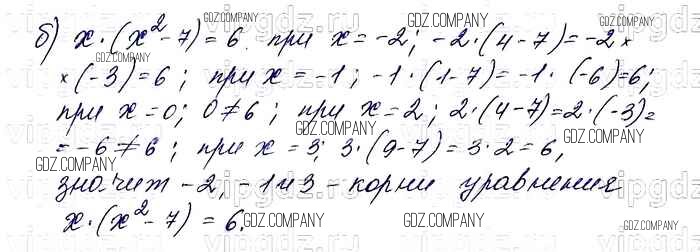 б) x·(x²-7)=6. при x=-2; -2·(4-7)=-2×
×(-3)=6; при x=-1; -1·(1-7)=-1·(-6)=6;
при x=0; 0≠6; при x=2; 2·(4-7)=2·(-3)=
=-6≠6; при x=3; 3·(9-7)=3·2=6,
значит -2, -1 и 3 - корни уравнения
x·(x²-7)=6.
GDZ.COMPANY
GDZ.COMPANY
GDZ.COMPANY
GDZ.COMPANY
GDZ.COMPANY
GDZ.COMPANY
GDZ.COMPANY
GDZ.COMPANY
GDZ.COMPANY
GDZ.COMPANY
GDZ.COMPANY